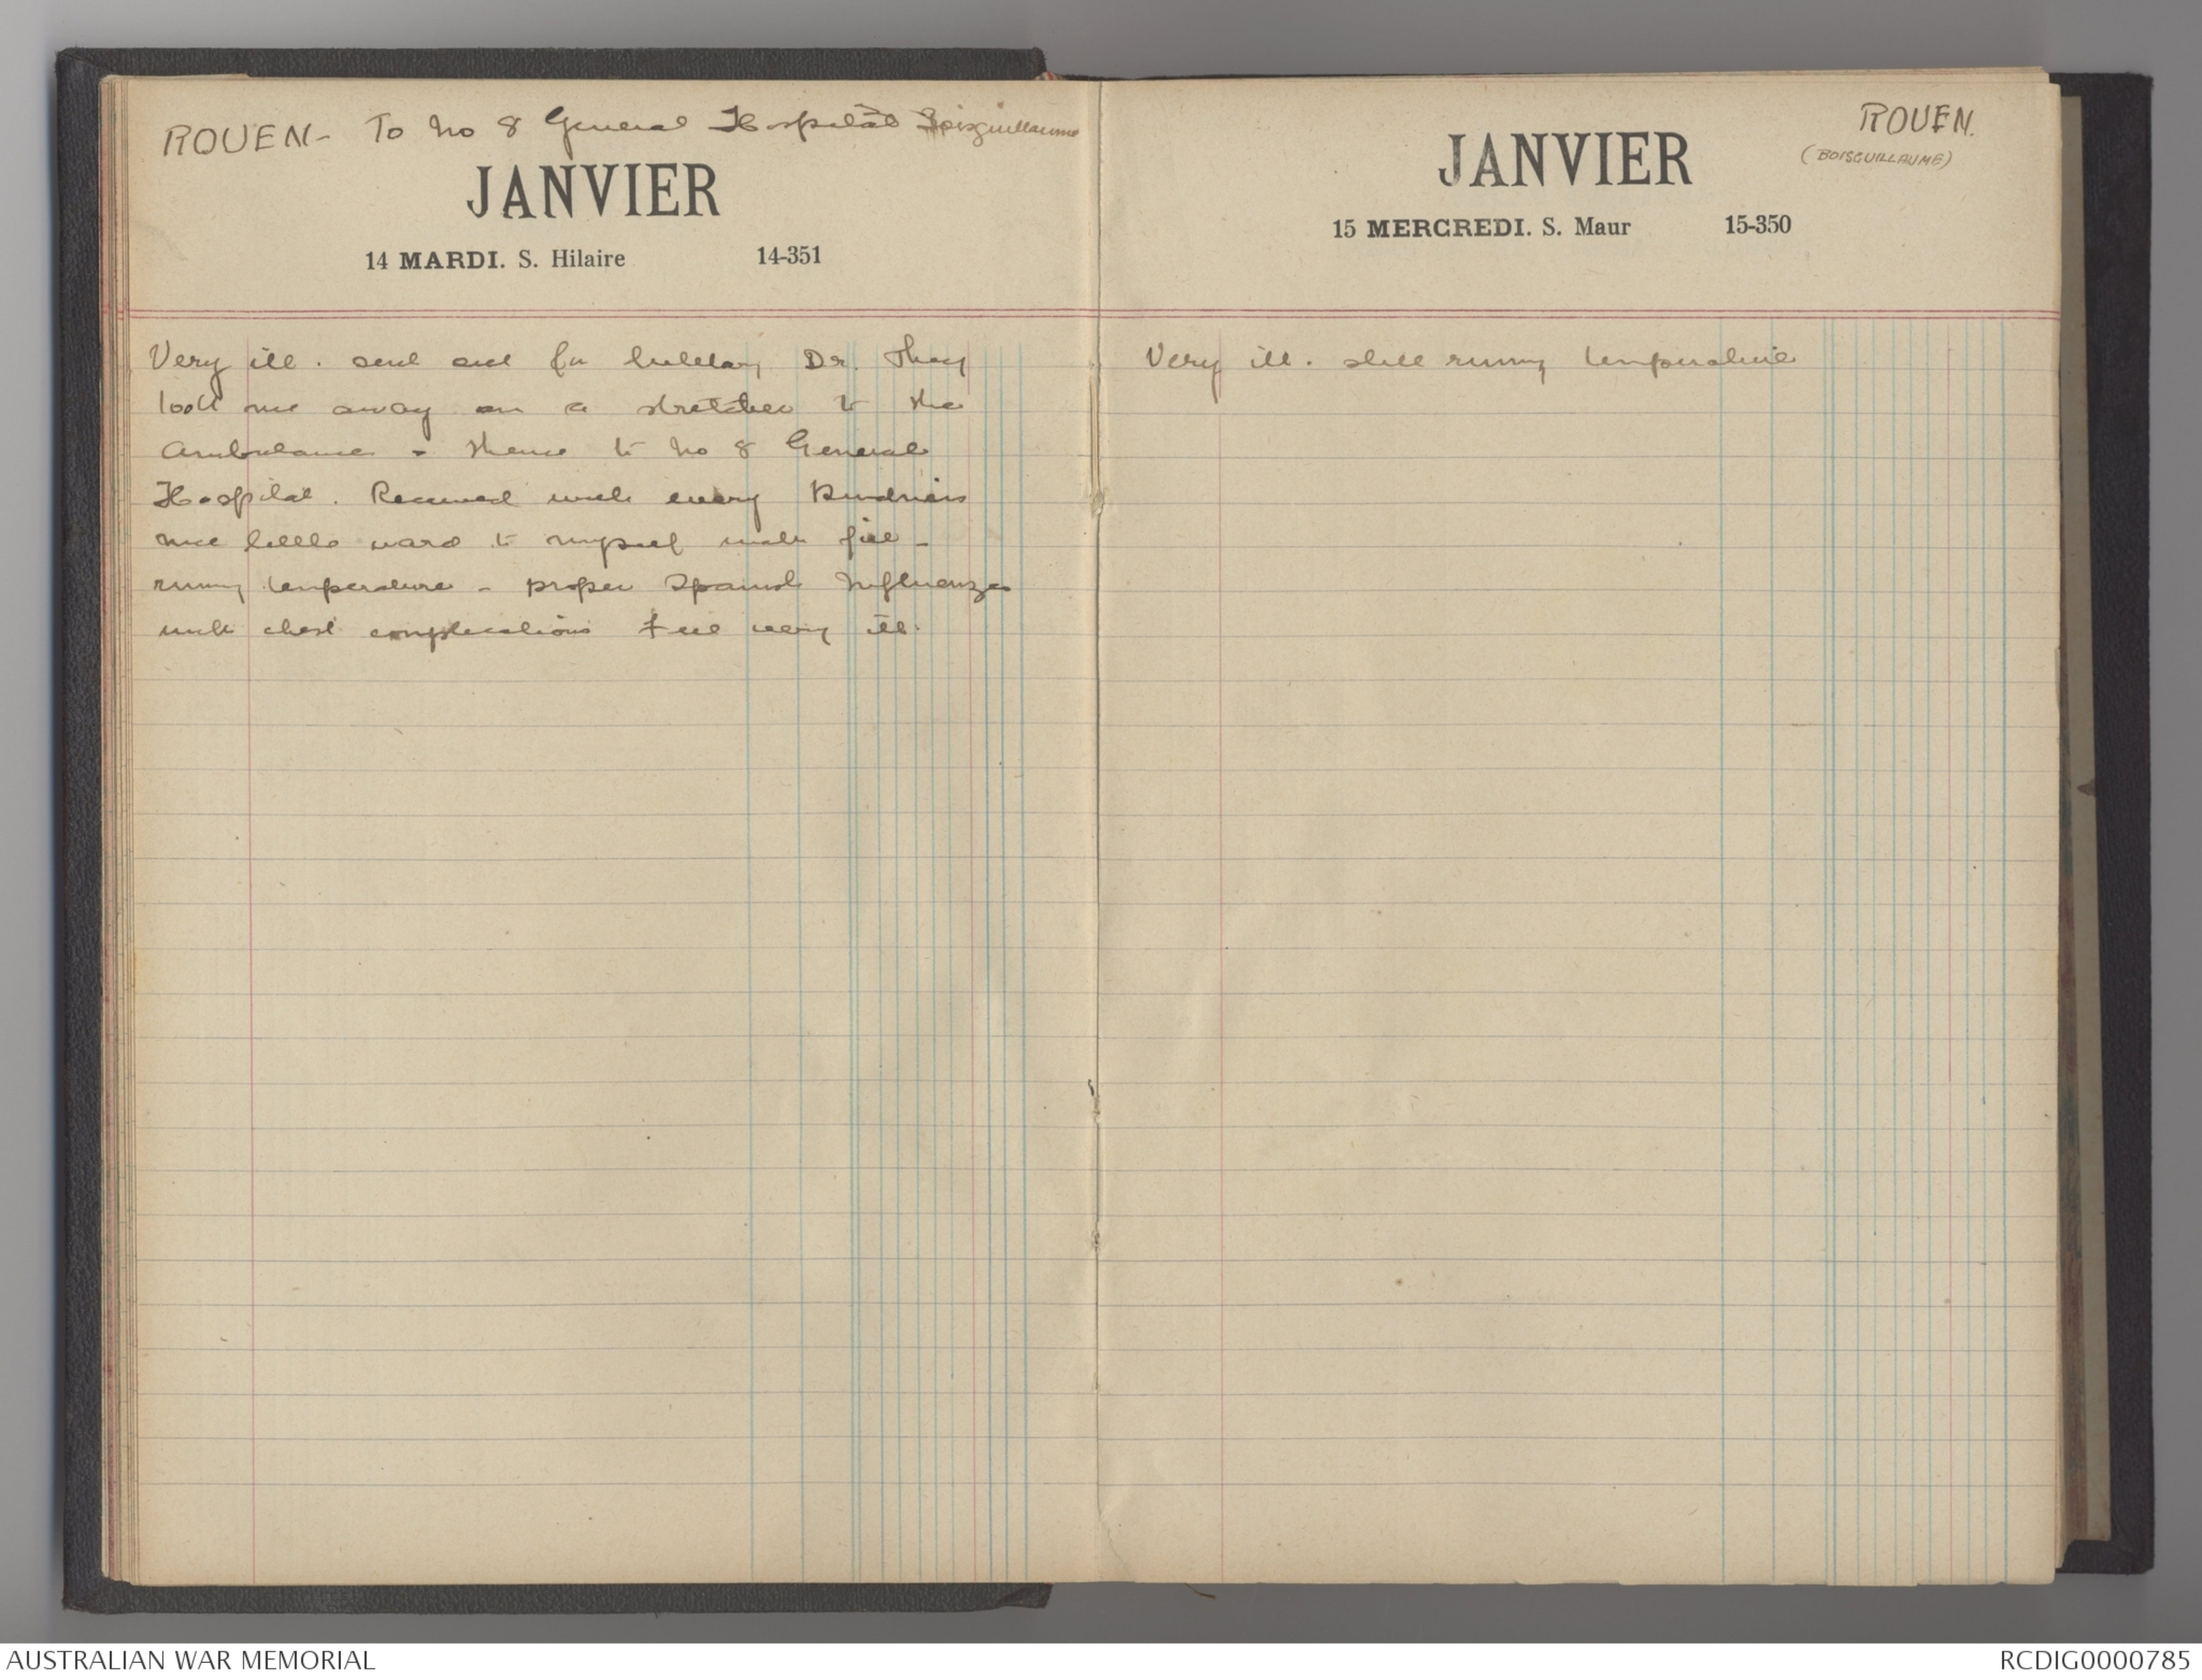 ROUEN - To No 8 General Hospital Boisguillaume
JANVIER
14 MARDI. S. Hilaire 14-351
Very ill. sent out for military Dr. They
took me away on a stretcher to the
Ambulance - thence to No 8 General
Hospital. Received with every kindness
nice little ward to myself with fire -
runny temperature - proper Spanish Influenza
with chest complications feel very ill.
ROUEN.
(BOISGUILLAUME)
JANVIER
15 MERCREDI. S. Maur 15-350
Very ill. still runny temperature
AUSTRALIAN WAR MEMORIAL
RCDIG0000785